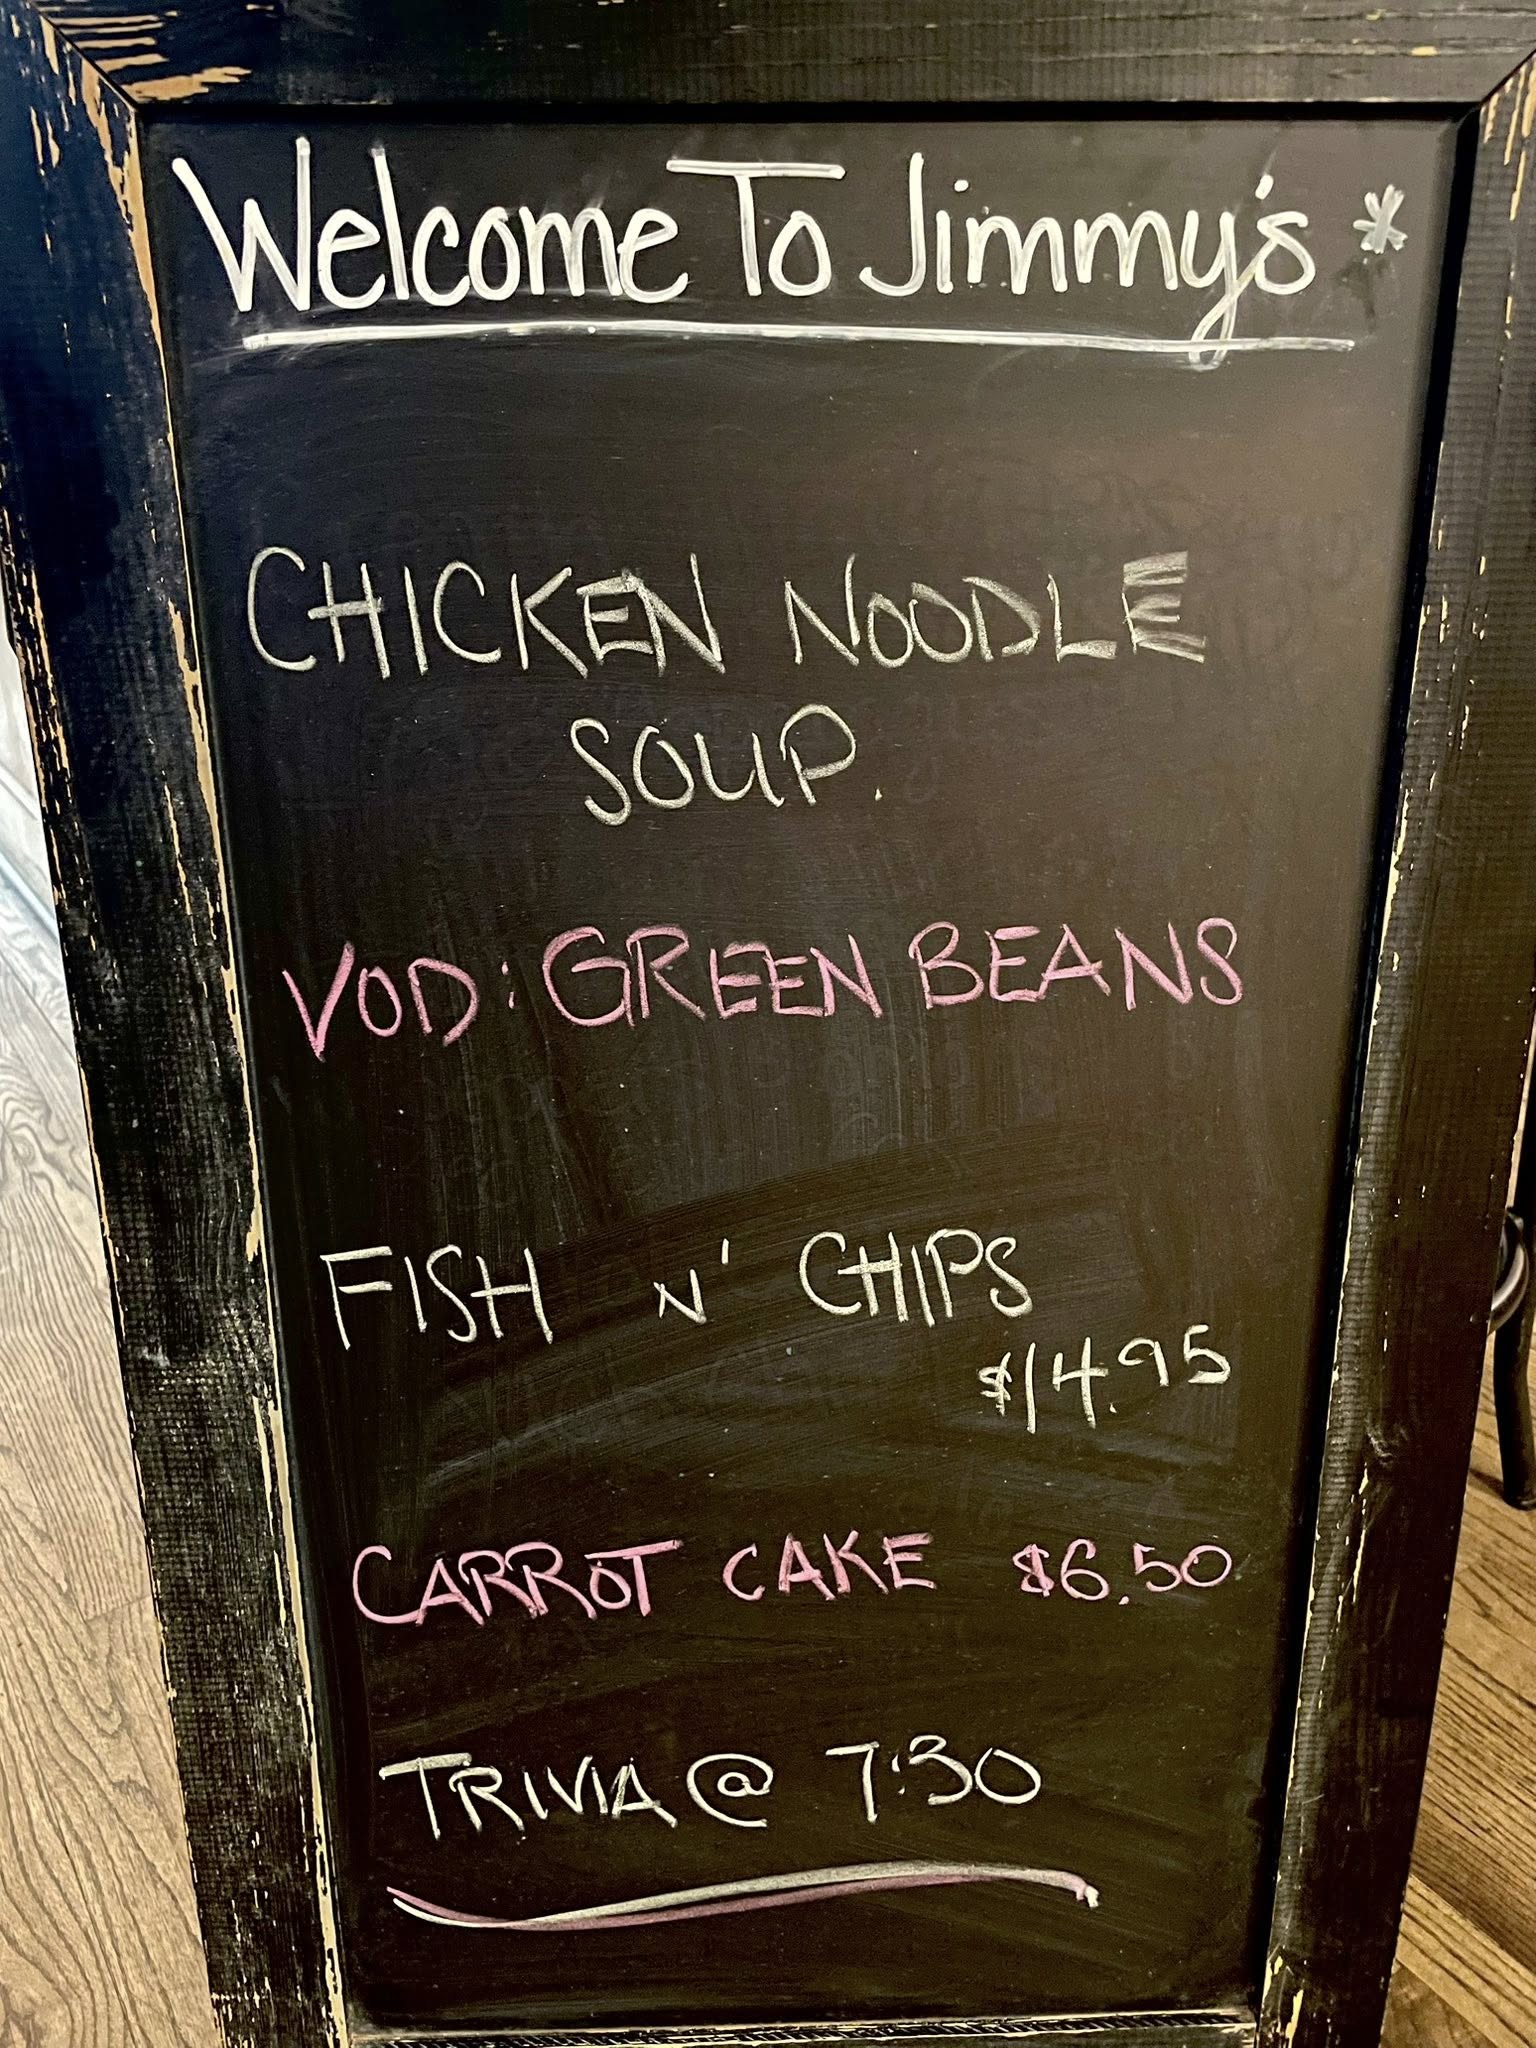 Welcome To Jimmy's *
CHICKEN NOODLE
SOUP.
VOD: GREEN BEANS
FISH N' CHIPS
$14.95
CARROT CAKE $6.50
TRIVIA @ 7:30